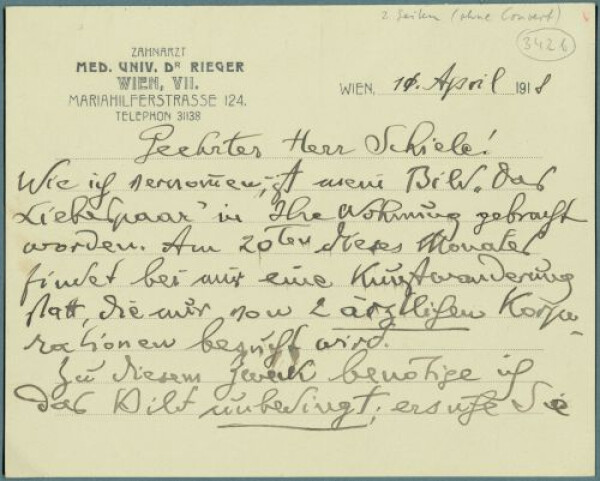 2 Seiten (ohne Couvert)
3426
ZAHNARZT
MED. UNIV. DR RIEGER
WIEN, VII.
MARIAHILFERSTRASSE 124.
TELEPHON 31138
WIEN, 14. April 1918
Geehrter Herr Schiele!
Wie ich vernomen, ist mein Bild „das
Liebespaar" in Ihre Wohnung gebracht
worden. Am 20ten dieses Monates
findet bei mir eine Kunstwanderung
statt, die mir von 2 ärztlichen Korpo-
rationen besucht wird.
Zu diesem Zweck benötige ich
das Bild unbedingt; ersuche Sie